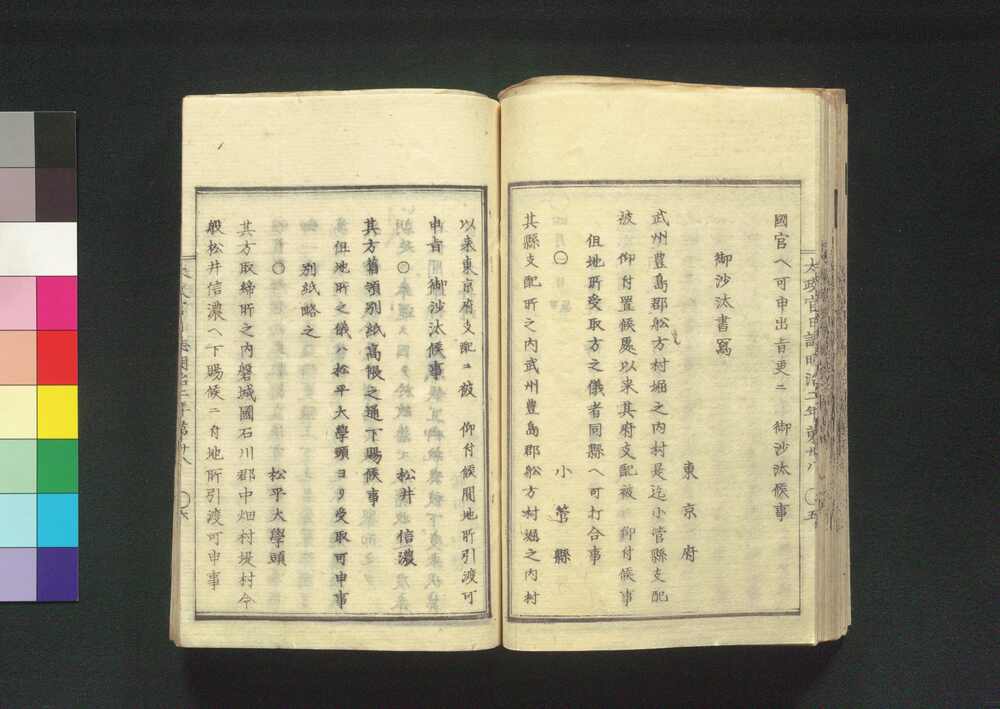 國官ヘ可申出旨更ニ 御沙汰候事
御沙汰書寫
東京府
武州豊島郡舩方村堀之内村是迄小菅縣支配
被 仰付置候處以来其府支配被 仰付候事
但地所受取方之儀者同縣ヘ可打合事
〇
小菅縣
其縣支配所之内武州豊島郡舩方村堀之内村
太政官日誌明治二年第廿八 〇五
以来東京府支配ニ被 仰付候間地所引渡可
申旨 御沙汰候事
〇 松井信濃
其方舊領別紙高帳之通下賜候事
但地所之儀ハ松平大學頭ヨリ受取可申事
別紙略之
〇 松平大學頭
其方取締所之内磐城國石川郡中畑村堤村今
般松井信濃ヘ下賜候ニ付地所引渡可申事
明治二年第廿八 〇六